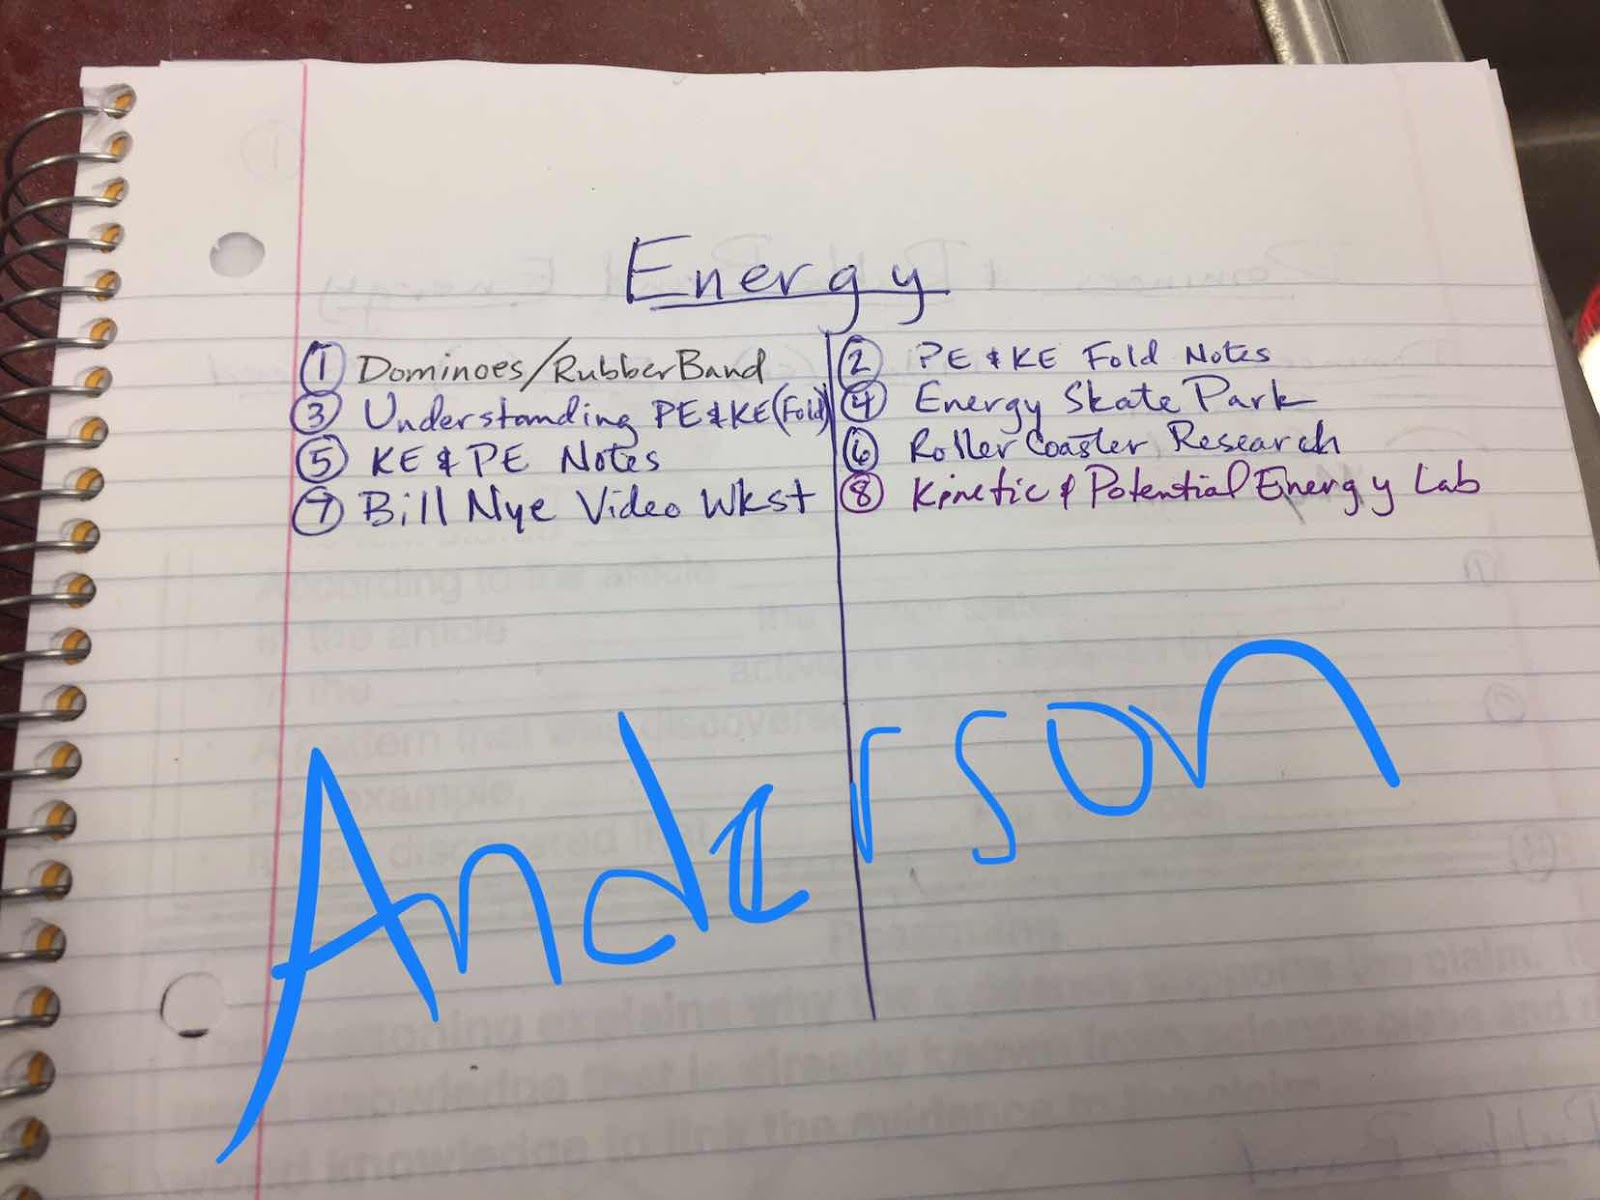 Energy
① Dominoes/RubberBand
② PE & KE Fold Notes
③ Understanding PE&KE(Fold)
④ Energy Skate Park
⑤ KE & PE Notes
⑥ Roller Coaster Research
⑦ Bill Nye Video Wkst
⑧ Kinetic & Potential Energy Lab
Anderson